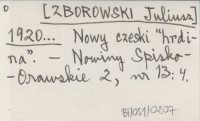 [ZBOROWSKI Juliusz]
1920... Nowy czeski "hrdi-
na". — Nowiny Spisko-
-Orawskie 2, nr 13: 4.